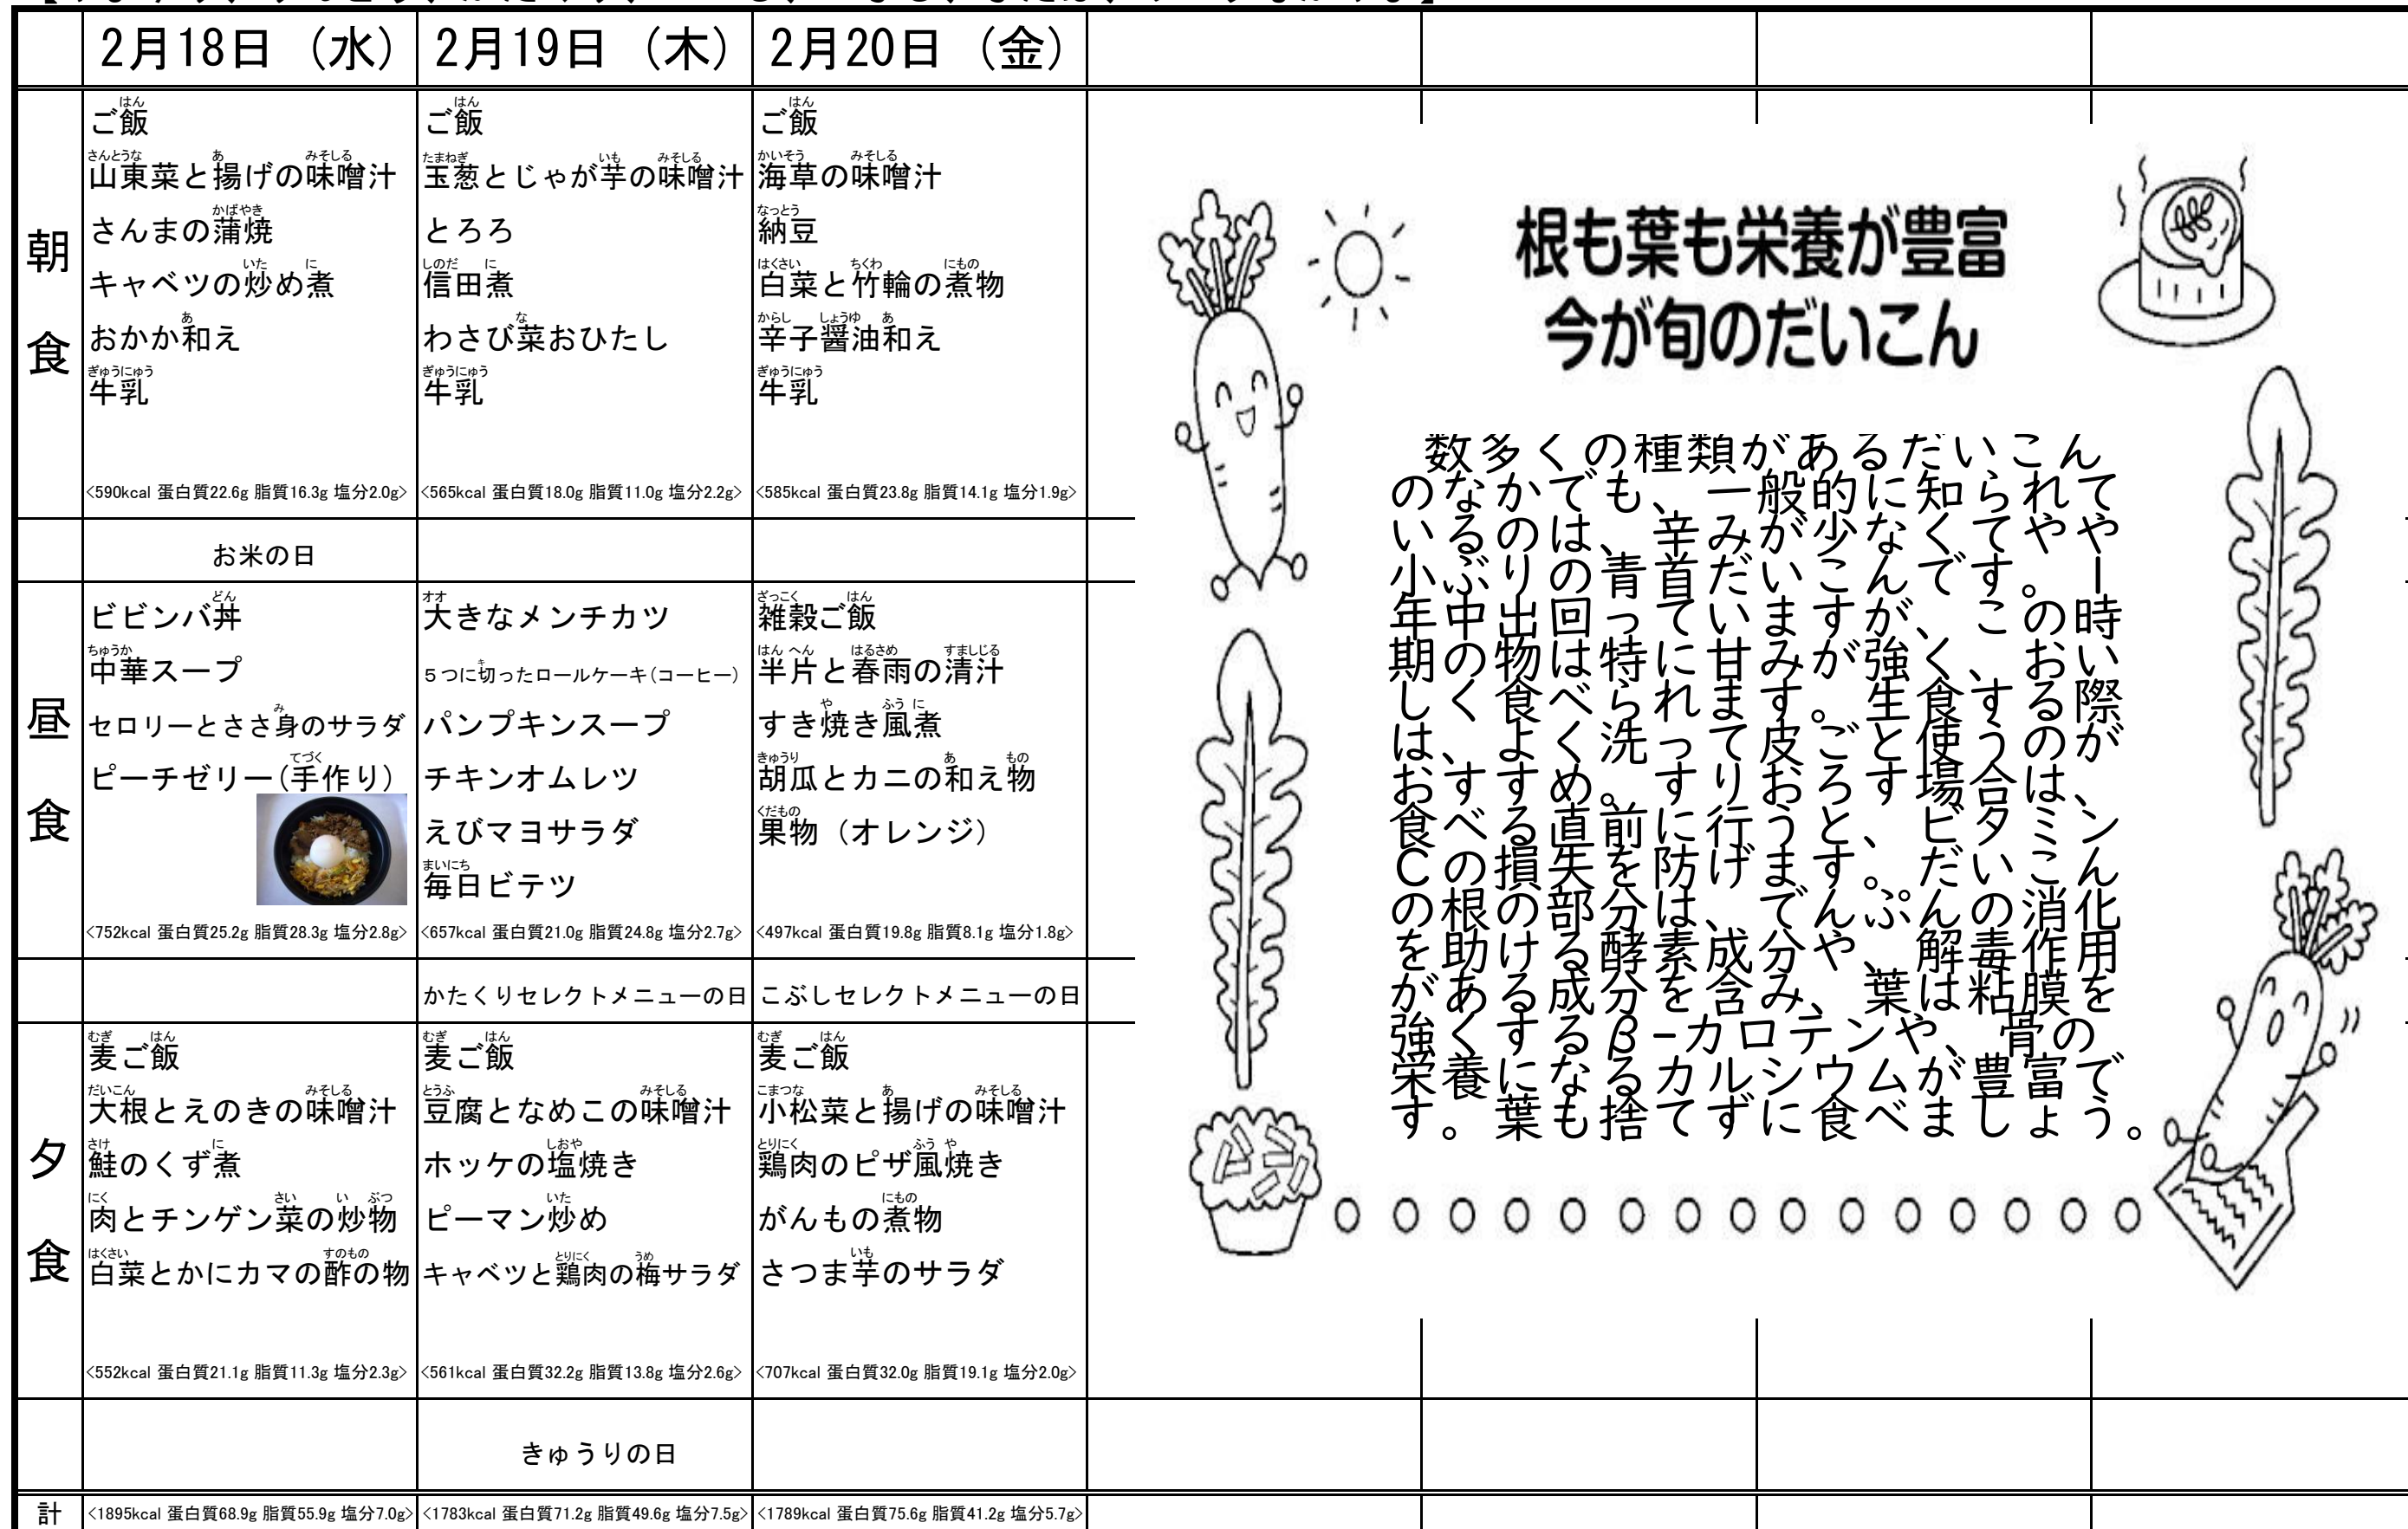 2月18日 （水）
2月19日 （木）
2月20日 （金）
朝食
ご飯
山東菜と揚げの味噌汁
さんまの蒲焼
キャベツの炒め煮
おかか和え
牛乳
<590kcal 蛋白質22.6g 脂質16.3g 塩分2.0g>
ご飯
玉葱とじゃが芋の味噌汁
とろろ
信田煮
わさび菜おひたし
牛乳
<565kcal 蛋白質18.0g 脂質11.0g 塩分2.2g>
ご飯
海草の味噌汁
納豆
白菜と竹輪の煮物
辛子醤油和え
牛乳
<585kcal 蛋白質23.8g 脂質14.1g 塩分1.9g>
お米の日
昼食
ビビンバ丼
中華スープ
セロリーとささ身のサラダ
ピーチゼリー(手作り)
<752kcal 蛋白質25.2g 脂質28.3g 塩分2.8g>
大きなメンチカツ
５つに切ったロールケーキ(コーヒー)
パンプキンスープ
チキンオムレツ
えびマヨサラダ
毎日ビテツ
<657kcal 蛋白質21.0g 脂質24.8g 塩分2.7g>
雑穀ご飯
半片と春雨の清汁
すき焼き風煮
胡瓜とカニの和え物
果物（オレンジ）
<497kcal 蛋白質19.8g 脂質8.1g 塩分1.8g>
かたくりセレクトメニューの日
こぶしセレクトメニューの日
夕食
麦ご飯
大根とえのきの味噌汁
鮭のくず煮
肉とチンゲン菜の炒物
白菜とかにカマの酢の物
<552kcal 蛋白質21.1g 脂質11.3g 塩分2.3g>
麦ご飯
豆腐となめこの味噌汁
ホッケの塩焼き
ピーマン炒め
キャベツと鶏肉の梅サラダ
<561kcal 蛋白質32.2g 脂質13.8g 塩分2.6g>
麦ご飯
小松菜と揚げの味噌汁
鶏肉のピザ風焼き
がんもの煮物
さつま芋のサラダ
<707kcal 蛋白質32.0g 脂質19.1g 塩分2.0g>
きゅうりの日
計
<1895kcal 蛋白質68.9g 脂質55.9g 塩分7.0g>
<1783kcal 蛋白質71.2g 脂質49.6g 塩分7.5g>
<1789kcal 蛋白質75.6g 脂質41.2g 塩分5.7g>
根も葉も栄養が豊富
今が旬のだいこん
数多くの種類があるだいこん
のなかでも、一般的に知られて
いるのは、辛みが少なくてやや
小ぶりの青首だいこんです。一
年中出回っていますが、この時
期の物は特に甘みが強く、おい
しく食べられます。生食する際
は、よく洗って皮ごと使うのが
おすすめ。すりおろす場合は、
食べる直前に行うと、ビタミン
Ｃの損失を防げます。だいこん
の根の部分は、でんぷんの消化
を助ける酵素成分や、解毒作用
がある成分を含み、葉は粘膜を
強くするβ-カロテンや、骨の
栄養になるカルシウムが豊富で
す。葉も捨てずに食べましょう。